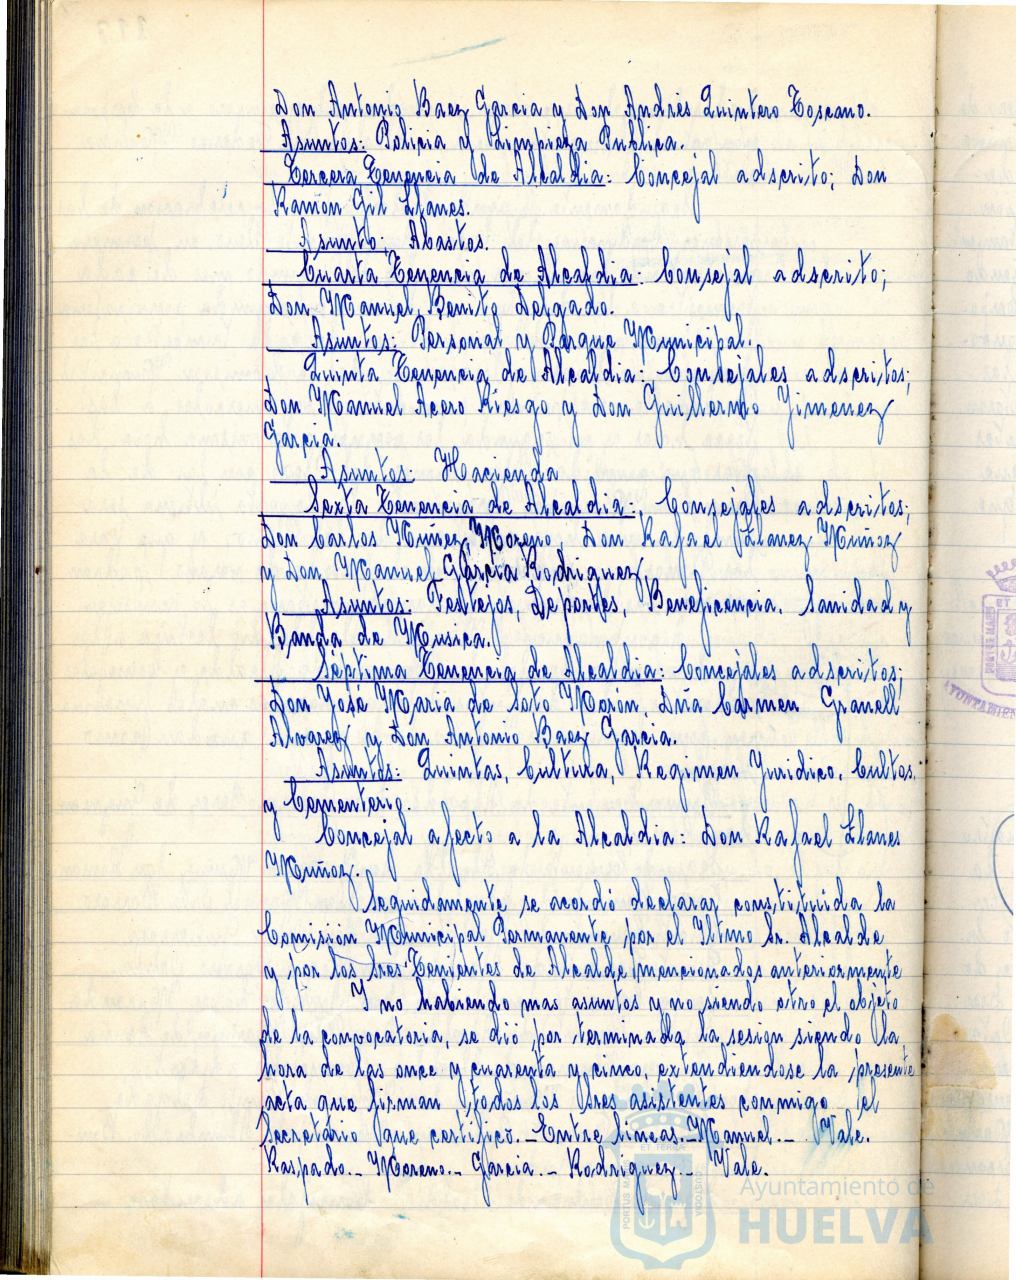 Don Antonio Baez Garcia y Don Andres Quintero Toscano.
Asuntos: Policia y Limpieza Publica.
Tercera Tenencia de Alcaldia: Concejal adscrito; Don
Ramón Gil Llanes.
Asunto; Abastos.
Cuarta Tenencia de Alcaldia: Consejal adscrito;
Don Manuel Benito Delgado.
Asuntos: Personal y Parque Municipal.
Quinta Tenencia de Alcaldia: Consejales adscritos;
Don Manuel Acero Riesgo y Don Guillermo Jimenez
Garcia.
Asuntos: Hacienda
Sexta Tenencia de Alcaldia: Consejales adscritos;
Don Carlos Nuñez Moreno Don Rafael Llanez Muñoz
y Don Manuel Garcia Rodriguez
Asuntos: Festejos, Deportes, Beneficencia. Sanidad y
Banda de Musica.
Séptima Tenencia de Alcaldia: Concejales adscritos;
Don José Maria de Soto Morón, Dña Carmen Granell
Alvarez y Don Antonio Baez Garcia.
Asuntos: Quintas, Cultura, Regimen Juridico, Cultos,
y Cementerio.
Concejal afecto a la Alcaldia: Don Rafael Llanes
Muñoz.
Seguidamente se acordó declarar constituida la
Comisión Municipal Permanente por el Iltmo Sr. Alcalde
y por los Sres Tenientes de Alcalde mencionados anteriormente
Y no habiendo mas asuntos y no siendo otro el objeto
de la convocatoria, se dió por terminada la sesion siendo la
hora de las once y cuarenta y cinco, extendiendose la presente
acta que firman todos los Sres asistentes conmigo el
Secretario que certifico._Entre lineas._Manuel._ Vale.
Raspado._ Moreno._ Garcia._ Rodriguez._ Vale.
Ayuntamiento de
HUELVA